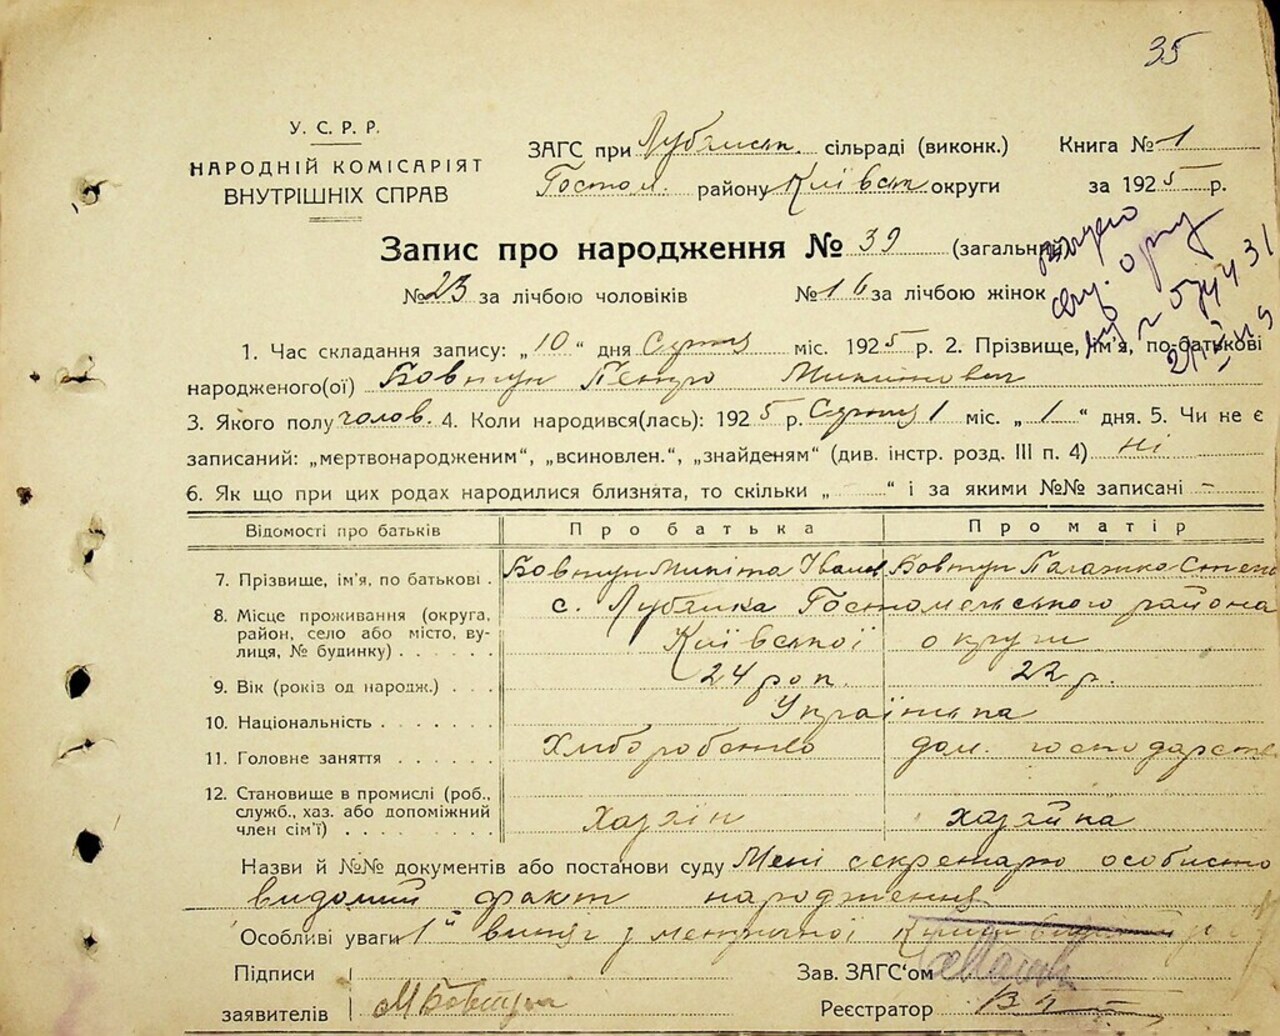 35
У. С. Р. Р.
НАРОДНІЙ КОМІСАРІЯТ
ВНУТРІШНІХ СПРАВ
ЗАГС при Лубянськ. сільраді (виконк.) Книга № 1
Гостом. району Київськ округи за 1925 р.
Запис про народження № 39 (загальний)
№ 23 за лічбою чоловіків № 16 за лічбою жінок
1. Час складання запису: „10“ дня Серпня міс. 1925 р. 2. Прізвище, ім'я, по-батькові
народженого(ої) Бовтун Петро Микитович
3. Якого полу чолов. 4. Коли народився(лась): 1925 р. Серпня 1 міс. „1“ дня. 5. Чи не є
записаний: „мертвонародженим“, „всиновлен.“, „знайденям“ (див. інстр. розд. III п. 4) ні
6. Як що при цих родах народилися близнята, то скільки „ “ і за якими №№ записані –
Відомості про батьків Про батька Про матір
7. Прізвище, ім'я, по батькові . Бовтун Микіта Іванов Бовтун Палажка Степ
8. Місце проживання (округа, район, село або місто, вулиця, № будинку) с. Лубянка Гостомельського района
Київської округи
9. Вік (років од народж.) 24 рок. 22 р.
10. Національність Українська
11. Головне заняття Хліборобство дом. господарств
12. Становище в промислі (роб., служб., хаз. або допоміжний член сім'ї) Хазяїн хазяйка
Назви й №№ документів або постанови суду Мені секретарю особисто
видомий факт народження
Особливі уваги 1й витяг з метричної
Підписи Зав. ЗАГС'ом
заявителів М Бовтун Реєстратор